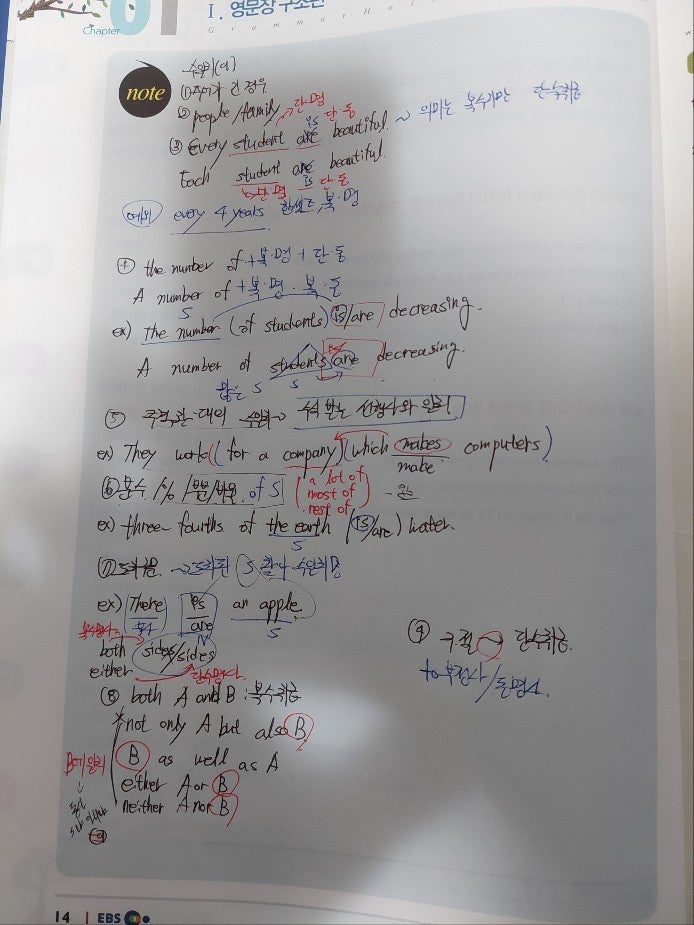 Chapter 01
I. 영문장 구조편
Grammar Ho
note
수일치(9)
① 주어가 긴 경우
② people/family → 단·명
is 단·동
③ Every student are beautiful. ~ 의미는 복수지만 단수취급
Each student are beautiful.
↳ 단·명 is 단·동
예외 every 4 years 복·명
④ the number of + 복·명 + 단·동
A number of + 복·명 · 복·동
S
ex) the number (of students) is/are decreasing.
A number of students are decreasing.
많은 S S
⑤ 주격관·대의 수일치 선행사와 일치
ex) They work (for a company) (which makes computers)
make
⑥ 분수/%/부분/비율 of S (a lot of
most of
rest of)
ex) three-fourths of the earth (is/are) water.
S
⑦ 도치된 S 찾아 수일치
ex) There is an apple.
부사 are S
V
복수명사
both sides/sides
either 단수명사
⑧ both A and B : 복수취급
*not only A but also B
B as well as A
either A or B
neither A nor B
B에 일치
⑨ 구·절 → 단수취급
to부정사/동명사
14 | EBS